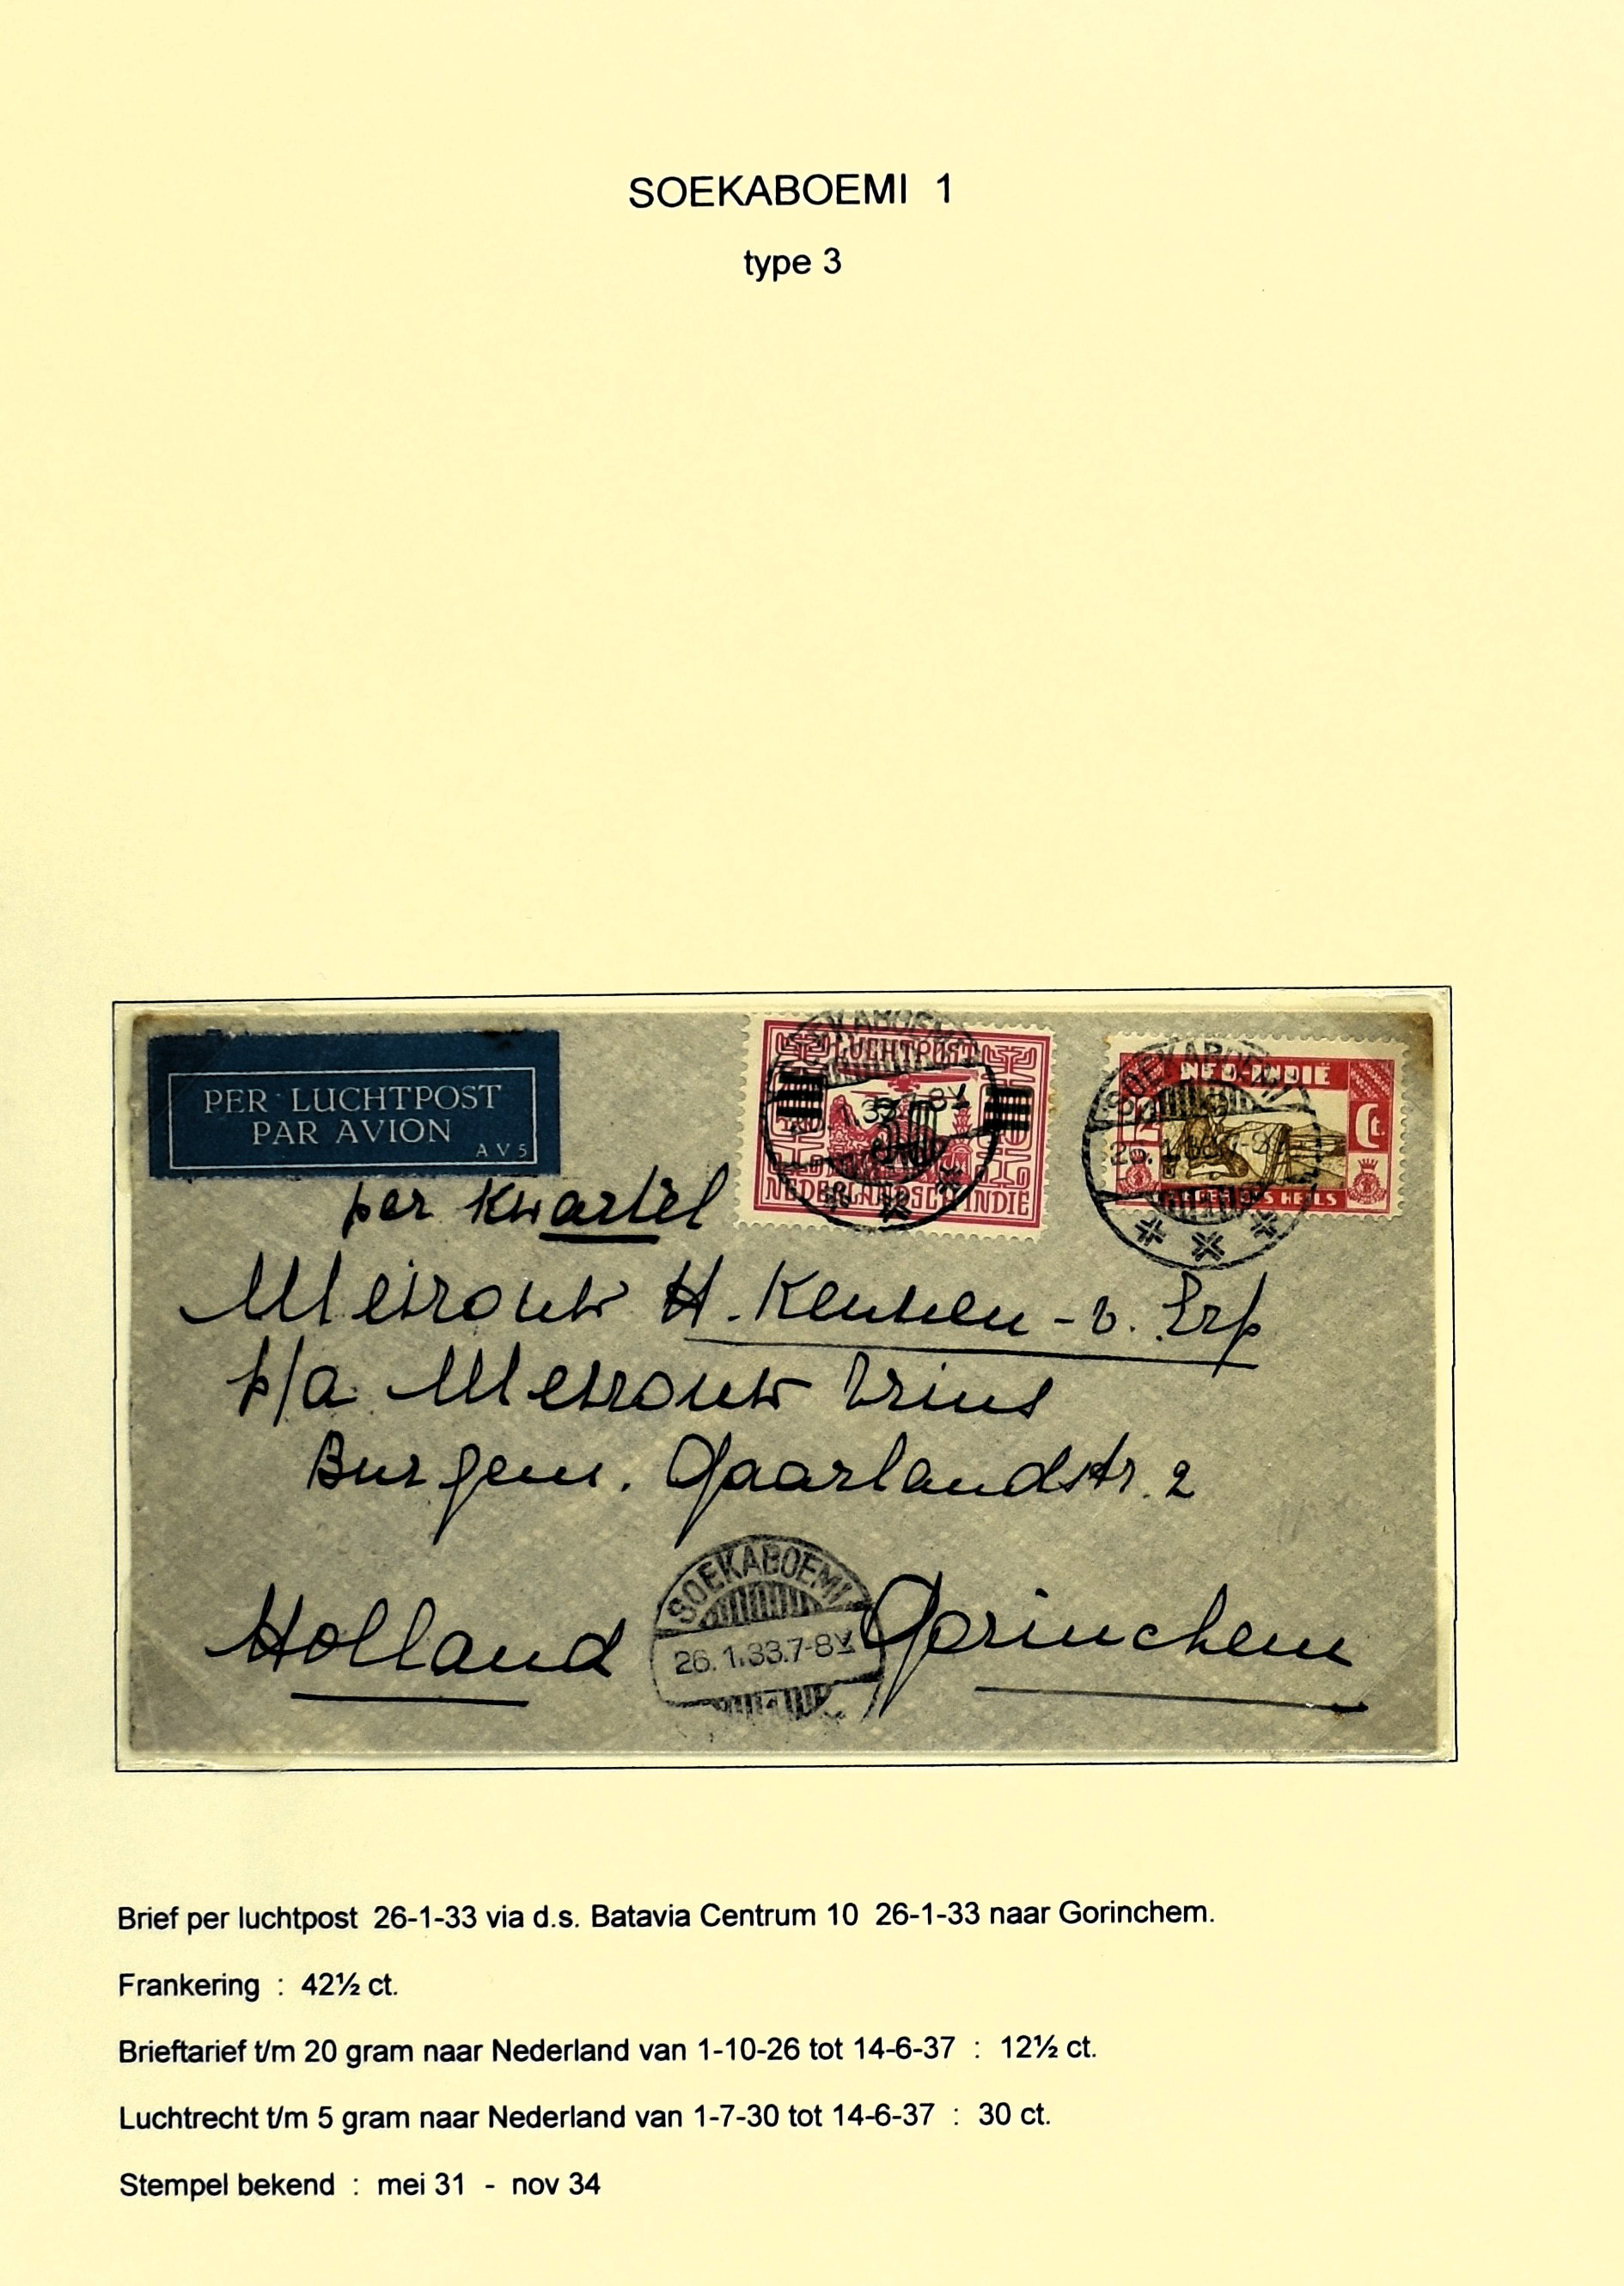 SOEKABOEMI 1
type 3
PER LUCHTPOST
PAR AVION
AV5
LUCHTPOST
30
NEDERLANDSCH INDIE
NED-INDIË
ct.
LEGER DES HEILS
SOEKABOEMI
per Kwartel
Mevrouw H. Keunen - v. Erp
p/a Mevrouw Vrins
Burgem. Gaarlandstr. 2
SOEKABOEMI
26.1.33.7-8V
Holland Gorinchem
Brief per luchtpost 26-1-33 via d.s. Batavia Centrum 10 26-1-33 naar Gorinchem.
Frankering : 42½ ct.
Brieftarief t/m 20 gram naar Nederland van 1-10-26 tot 14-6-37 : 12½ ct.
Luchtrecht t/m 5 gram naar Nederland van 1-7-30 tot 14-6-37 : 30 ct.
Stempel bekend : mei 31 - nov 34